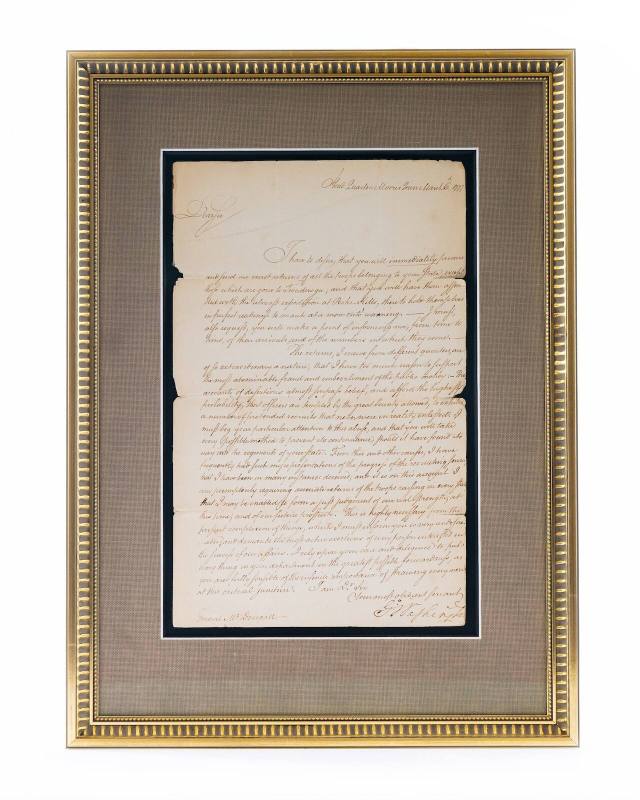 Head Quarters Morris Town March 6th 1777
Dear Sir
I have to desire, that you will immediately procure
and send me exact returns of all the troops belonging to your State, except
those which are gone to Ticonderoga, and that you will have them
with the utmost expedition at Peeks Kills, there to hold themselves
in perfect readiness to march at a moments warning. — I must,
also request, you will make a point of informing me, from time to
time, of their arrivals and of the numbers in which they come —
The returns, I receive from different quarters, are
of so extraordinary a nature, that I have too much reason to suspect
the most abominable fraud and embezzlement of the public money. — The
accounts of desertions almost surpass belief, and afford the highest
probability, that officers are tempted by the great bounty allowed, to
a number of pretended recruits, that never were in reality enlisted. I
must beg your particular attention to this abuse, and that you will take
every possible method to prevent its continuance,
way into the regiments of your state. From this and other causes, I have
frequently had such misrepresentations of the progress of the recruiting service,
that I have been in many instances deceived, and it is on this account I
am peremptorily requiring accurate returns of the troops raising in every State
that I may be enabled to form a just judgement of our real strength, at
this time, and of our future prospects. This is highly necessary from the
present complexion of things, which I must inform you is very
and demands the most active exertions of every person interested in
the success of our affairs. I rely upon your care and diligence to put
every thing in your department in the greatest possible forwardness, as
you are fully sensible of the infinite importance of
at this critical juncture. I am Dr Sir
Your most obedient Servant
Go Washington
General McDougall —